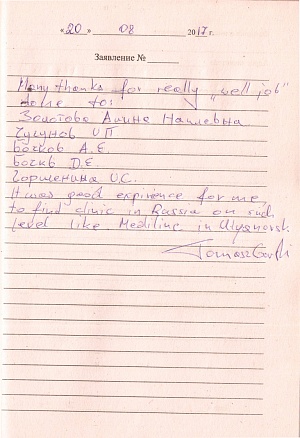 «20» 08 2017 г.
Заявление №
Many thanks for really "well job"
done for:
Золотова Алина Наилевна
Чугунов И П
Бочков А.Е.
Бочкв D.Е.
Горшенина О.С.
It was good expirience for me,
to find clinic in Russia on such
level like Mediline in Ulyanovsk